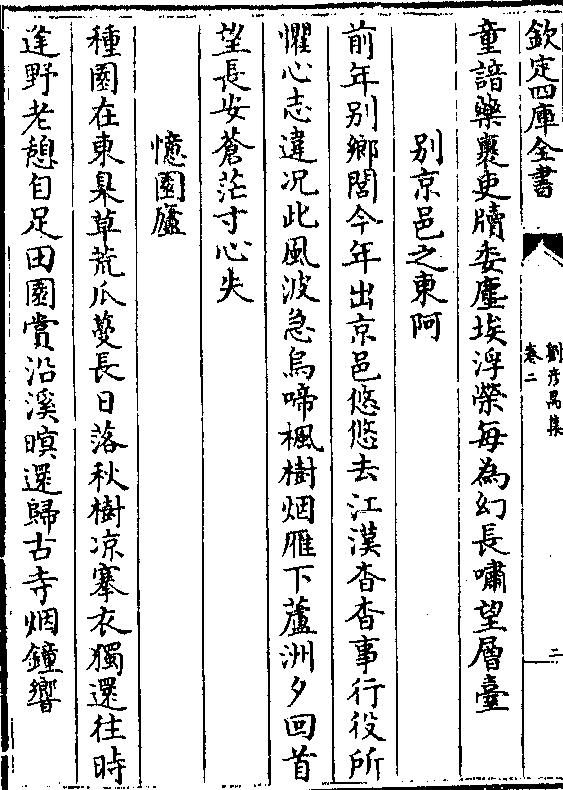 欽定四庫全書
劉彥昺集
卷二
二
童諳藥裹吏牘委塵埃浮榮每為幻長嘯望層臺
别京邑之東阿
前年别鄉閭今年出京邑悠悠去江漢杳杳事行役所
懼心志違况此風波急烏啼楓樹烟雁下蘆洲夕回首
望長安蒼茫寸心失
憶園廬
種園在東臯草荒瓜蔓長日落秋樹凉搴衣獨還往時
逢野老憩自足田園賞沿溪暝還歸古寺烟鐘響